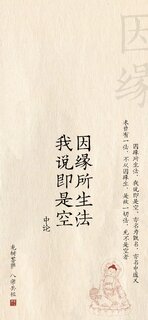 因缘
因缘所生法，我说即是空，亦名为假名，亦名中道义
未曾有一法，不从因缘生，是故一切法，无不是空者
因缘所生法
我说即是空
中论
龙树菩萨 八宗共祖